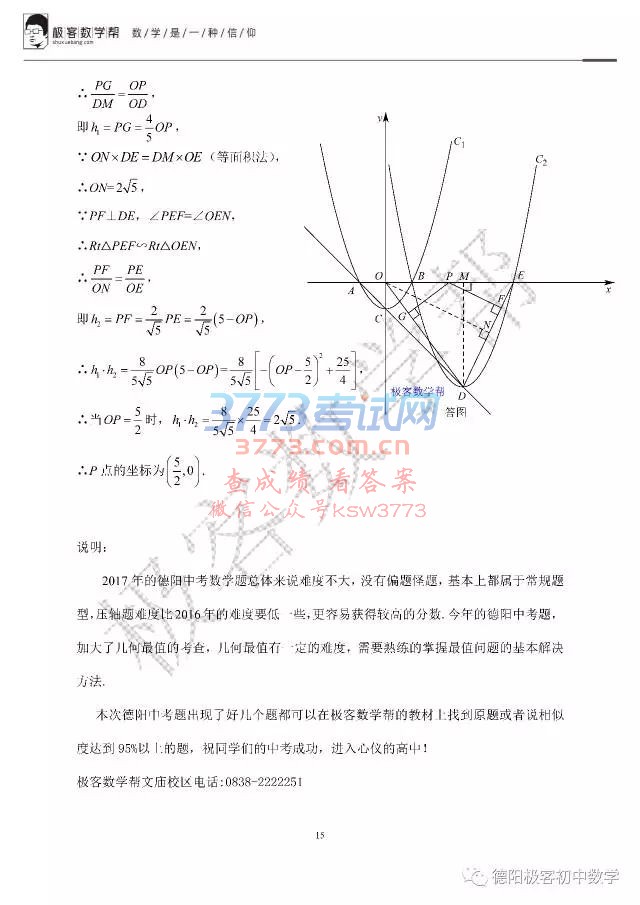 极客数学帮 数/学/是/一/种/信/仰
shuxuebang.com
∴ PG/DM = OP/OD,
即 h₁ = PG = 4/5 OP,
∵ ON×DE = DM×OE (等面积法),
∴ON=2√5,
∵PF⊥DE, ∠PEF=∠OEN,
∴Rt△PEF∽Rt△OEN,
∴ PF/ON = PE/OE,
即 h₂ = PF = 2/√5 PE = 2/√5 (5−OP),
∴ h₁·h₂ = 8/5√5 OP(5−OP) = 8/5√5 [−(OP−5/2)² + 25/4],
∴当 OP = 5/2 时, h₁·h₂ = 8/5√5 × 25/4 = 2√5.
∴P 点的坐标为 (5/2, 0).
y
C₁
C₂
A
O
B
P
M
E
x
C
G
F
N
D
极客数学帮
答图
3773考试网
3773.com.cn
查成绩 看答案
微信公众号ksw3773
说明:
2017 年的德阳中考数学题总体来说难度不大, 没有偏题怪题, 基本上都属于常规题
型, 压轴题难度比 2016 年的难度要低一些, 更容易获得较高的分数. 今年的德阳中考题,
加大了几何最值的考查, 几何最值有一定的难度, 需要熟练的掌握最值问题的基本解决
方法.
本次德阳中考题出现了好几个题都可以在极客数学帮的教材上找到原题或者说相似
度达到 95%以上的题, 祝同学们的中考成功, 进入心仪的高中!
极客数学帮文庙校区电话:0838-2222251
15
德阳极客初中数学